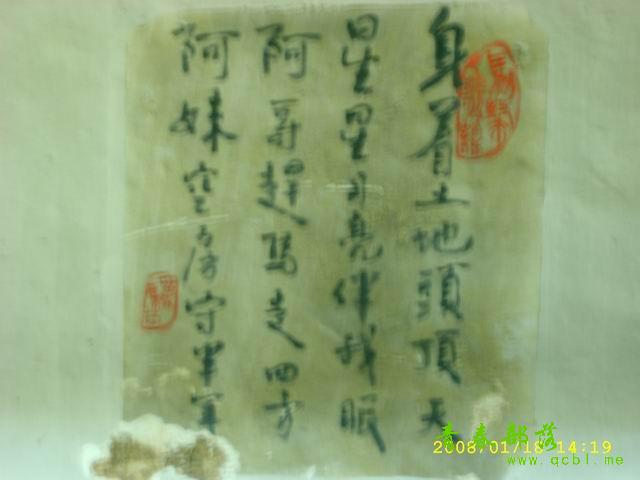 身着土地頭頂天
星星月亮伴我眠
阿哥趕馬走四方
阿妹空房守半年
青春部落
2008/01/18 14:19
www.qcbl.me